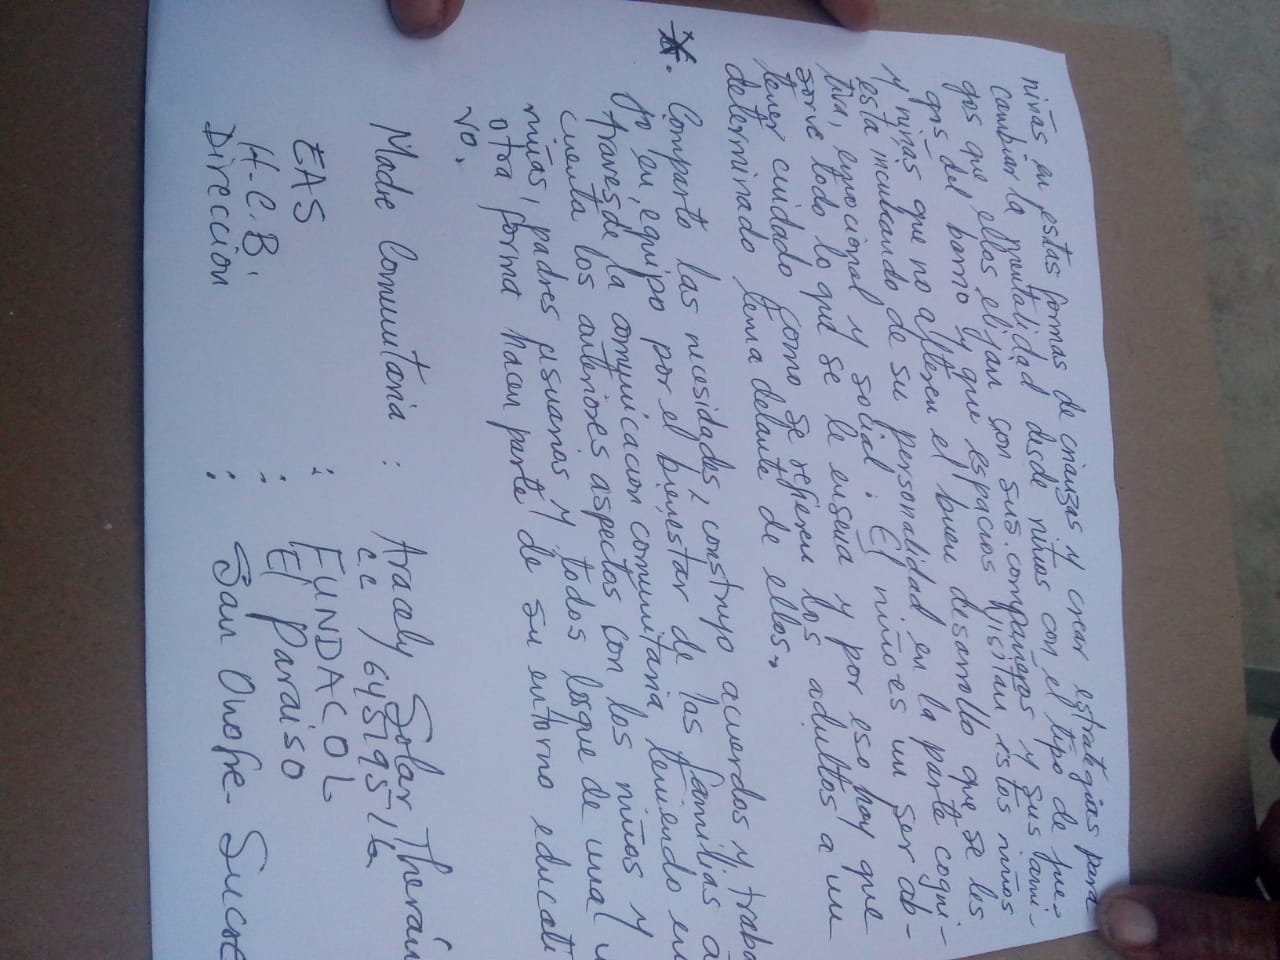 niñas en estas formas de crianzas y crear estrategias para
cambiar la mentalidad desde niños con el tipo de jue-
gos que ellos elijan con sus compañeros y sus ami-
gos del barrio y que espacios visitan estos niños
y niñas que no alteren el buen desarrollo que se les
esta inculcando de su personalidad en la parte cogni-
tiva, emocional y social. El niño es un ser ab-
sorve todo lo que se le enseña y por eso hay que
tener cuidado como se refieren los adultos a un
determinado tema delante de ellos.
*. Comparto las necesidades, construyo acuerdos y traba
jo en equipo por el bienestar de las familias a
traves de la comunicacion comunitaria, teniendo en
cuenta los anteriores aspectos con los niños y
niñas, padres usuarios y todos los que de una u
otra forma hacen parte de su entorno educati
vo.
Madre Comunitaria : Aracely Solar Therán
C.C 64579576
EAS : FUNDACOL
H.C.B. : El Paraiso
Dirección : San Onofre - Sucre